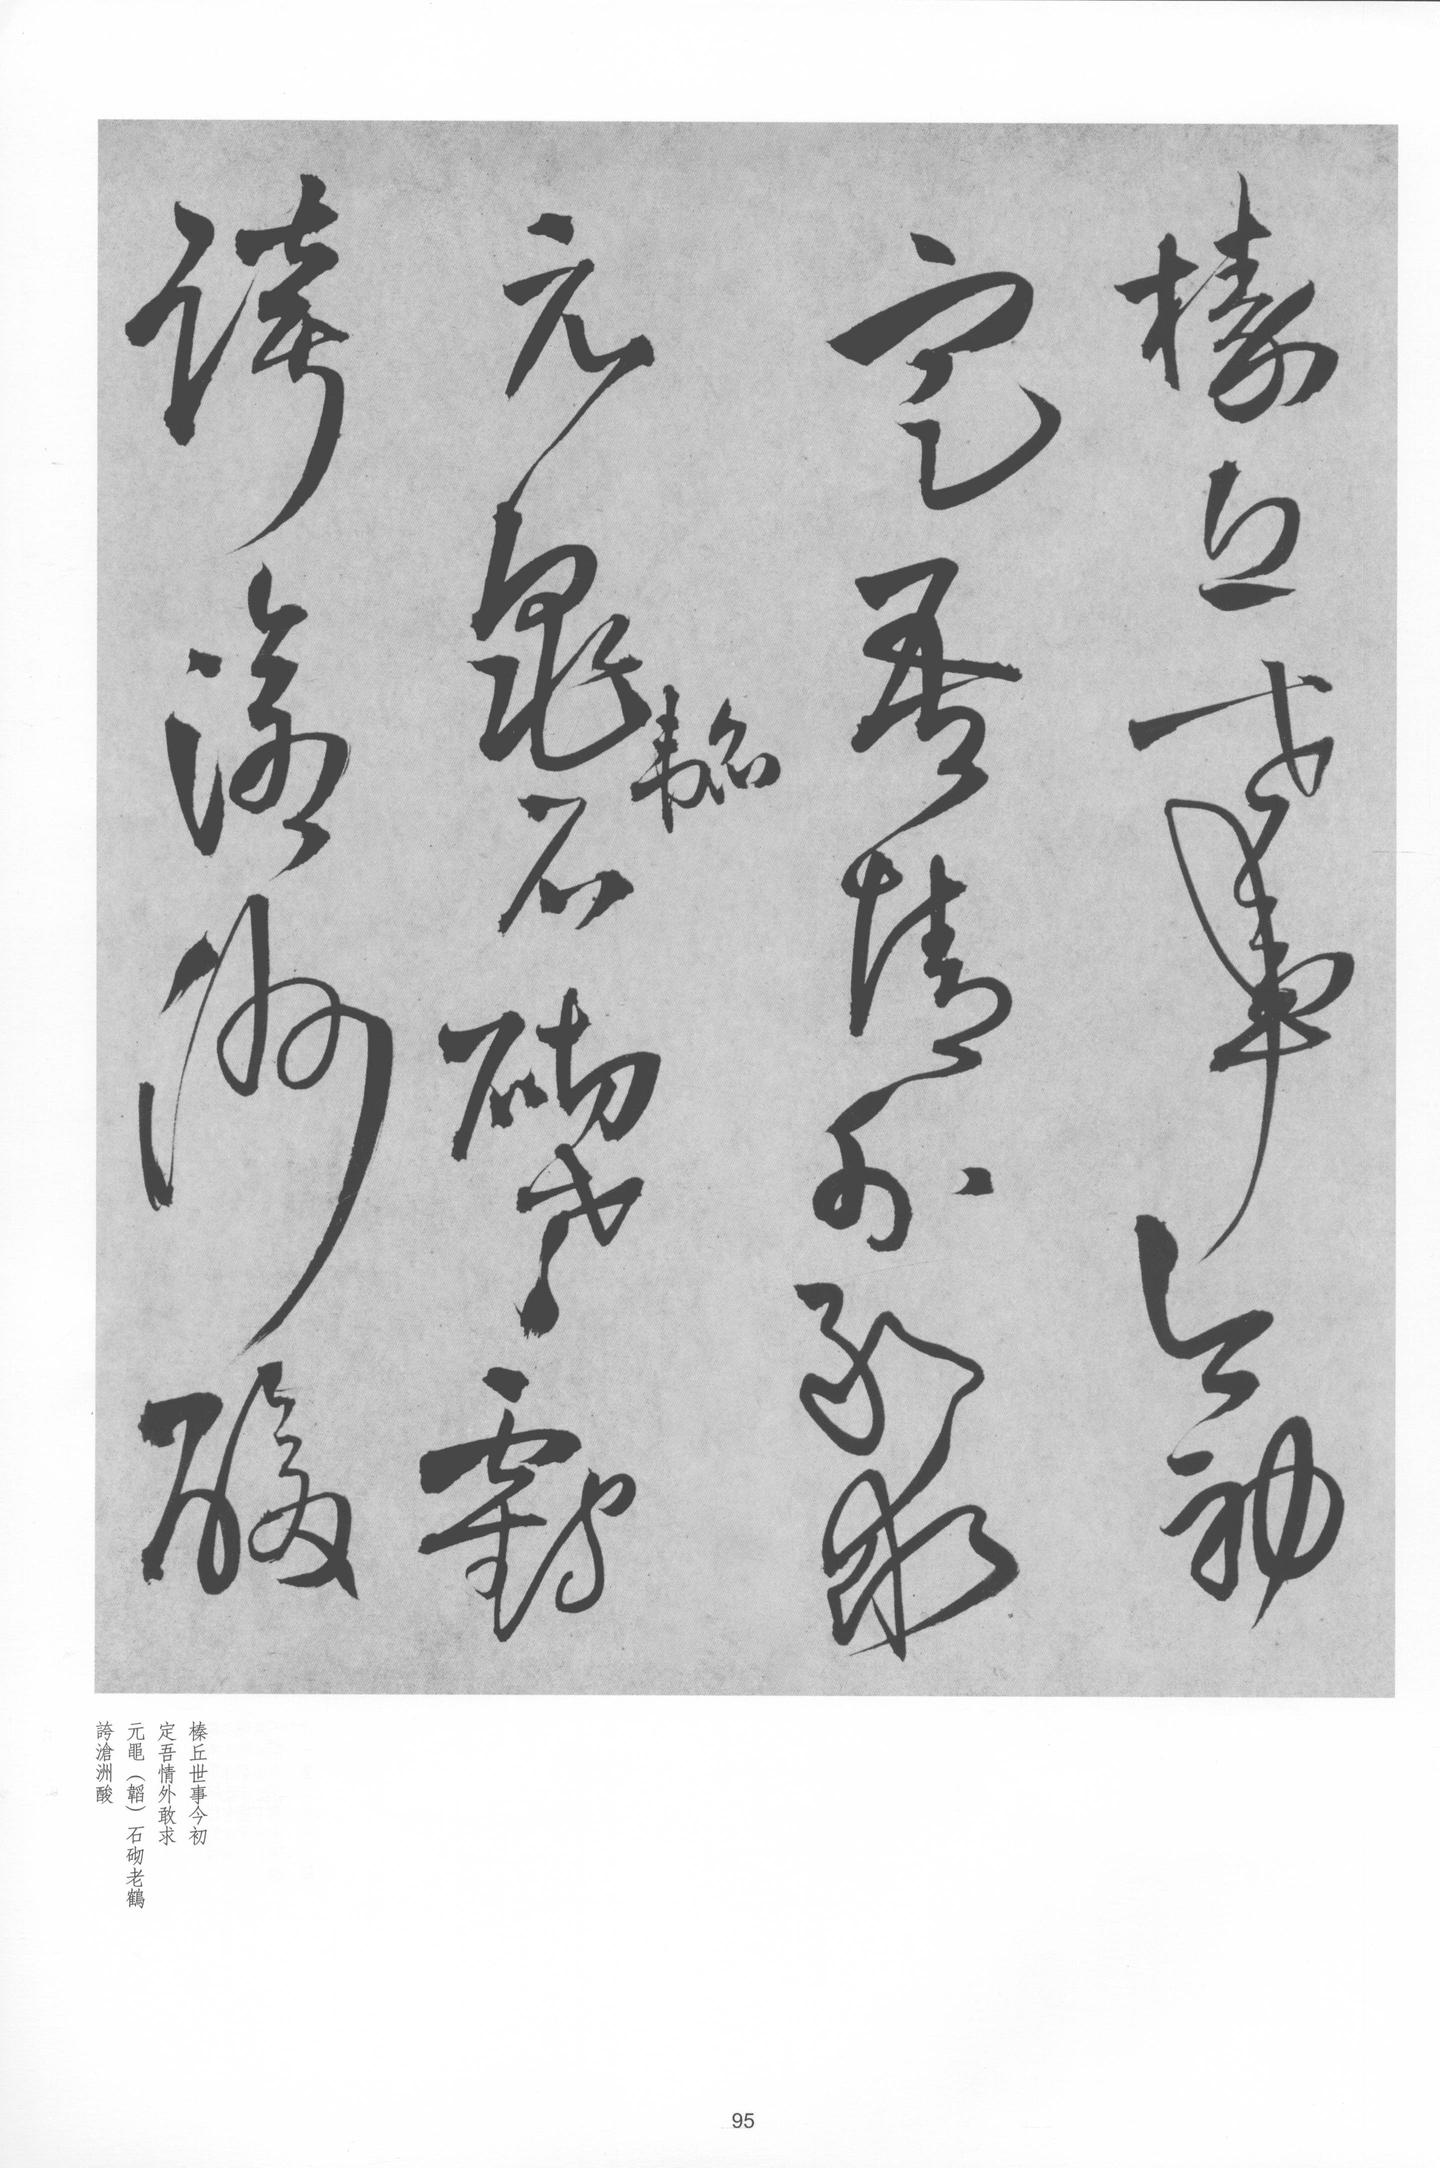 榛丘世事今初
定吾情外敢求
元黽韜石砌老鶴
誇滄洲酸
榛丘世事今初
定吾情外敢求
元黽（韜）石砌老鶴
誇滄洲酸
95